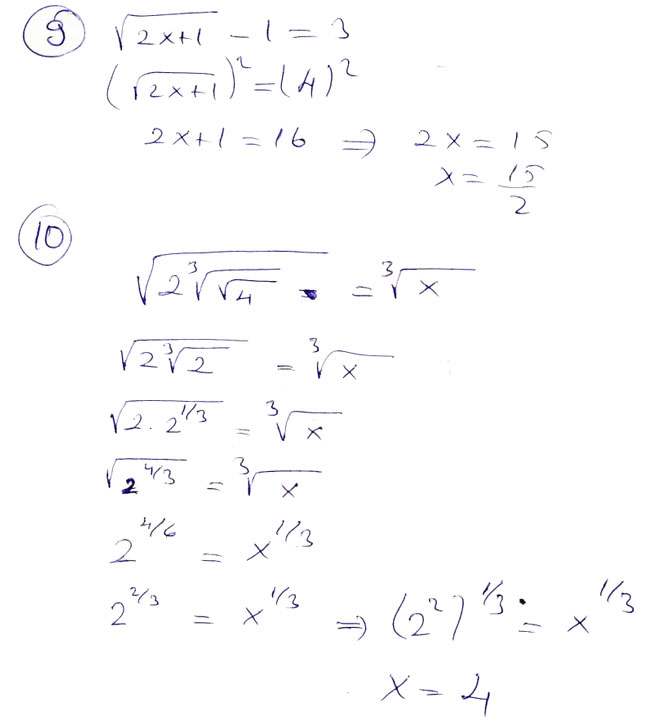 9 √(2x+1) - 1 = 3
(√(2x+1))² = (4)²
2x+1 = 16 ⇒ 2x = 15
x = 15/2
10
√(2∛(√4)) = ∛x
√(2∛2) = ∛x
√(2·2^(1/3)) = ∛x
√(2^(4/3)) = ∛x
2^(4/6) = x^(1/3)
2^(2/3) = x^(1/3) ⇒ (2²)^(1/3) = x^(1/3)
x = 4